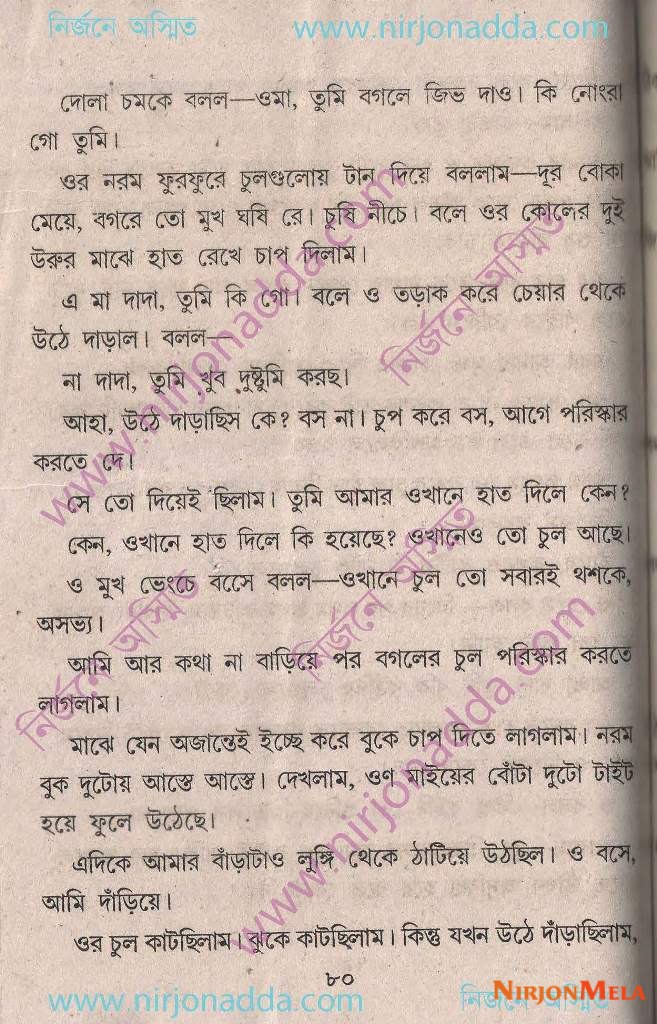 নির্জনে অস্মিত www.nirjonadda.com
দোলা চমকে বলল—ওমা, তুমি বগলে জিভ দাও। কি নোংরা
গো তুমি।
ওর নরম ফুরফুরে চুলগুলোয় টান দিয়ে বললাম—দূর বোকা
মেয়ে, বগরে তো মুখ ঘষি রে। চুষি নীচে। বলে ওর কোলের দুই
উরুর মাঝে হাত রেখে চাপ দিলাম।
এ মা দাদা, তুমি কি গো। বলে ও তড়াক করে চেয়ার থেকে
উঠে দাড়াল। বলল—
না দাদা, তুমি খুব দুষ্টুমি করছ।
আহা, উঠে দাড়াছিস কে? বস না। চুপ করে বস, আগে পরিস্কার
করতে দে।
সে তো দিয়েই ছিলাম। তুমি আমার ওখানে হাত দিলে কেন?
কেন, ওখানে হাত দিলে কি হয়েছে? ওখানেও তো চুল আছে।
ও মুখ ভেংচে বসেে বলল—ওখানে চুল তো সবারই থশকে,
অসভ্য।
আমি আর কথা না বাড়িয়ে পর বগলের চুল পরিস্কার করতে
লাগলাম।
মাঝে যেন অজান্তেই ইচ্ছে করে বুকে চাপ দিতে লাগলাম। নরম
বুক দুটোয় আস্তে আস্তে। দেখলাম, ওণ মাইয়ের বোঁটা দুটো টাইট
হয়ে ফুলে উঠেছে।
এদিকে আমার বাঁড়াটাও লুঙ্গি থেকে ঠাটিয়ে উঠছিল। ও বসে,
আমি দাঁড়িয়ে।
ওর চুল কাটছিলাম। ঝুকে কাটছিলাম। কিন্তু যখন উঠে দাঁড়াছিলাম,
৮০
www.nirjonadda.com নির্জনে অস্মিত
NIRJONMELA
www.nirjonadda.com
নির্জনে অস্মিত
নির্জনে অস্মিত
নির্জনে অস্মিত
www.nirjonadda.com